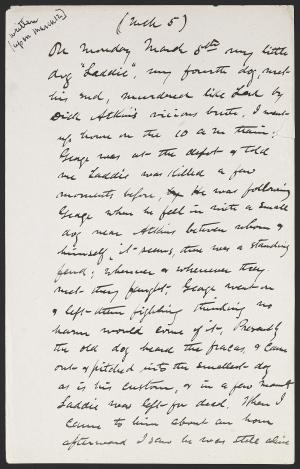 written
(upon
(Mch 5)
On Monday March 5th my little
dog "Laddie", my fourth dog, met
his end, murdered like Lark by
Dick Atkins vicious brute. I went
up home on the 10 a m train;
Geoge was at the depot & told
me Laddie was killed a few
moments before, he was following
Geoge when he fell in with a small
dog near Atkins between whom &
himself, it seems, there was a standing
feud; wherever or whenever they
met they faught. Geoge went on
& left them fighting thinking no
harm would come of it. Presently
the old dog heard the fracas, & came
out & pitched into the smallest dog
as is his custom, & in a few moments
Laddie was left for dead. When I
came to him about an hour
afterward I saw he was still alive